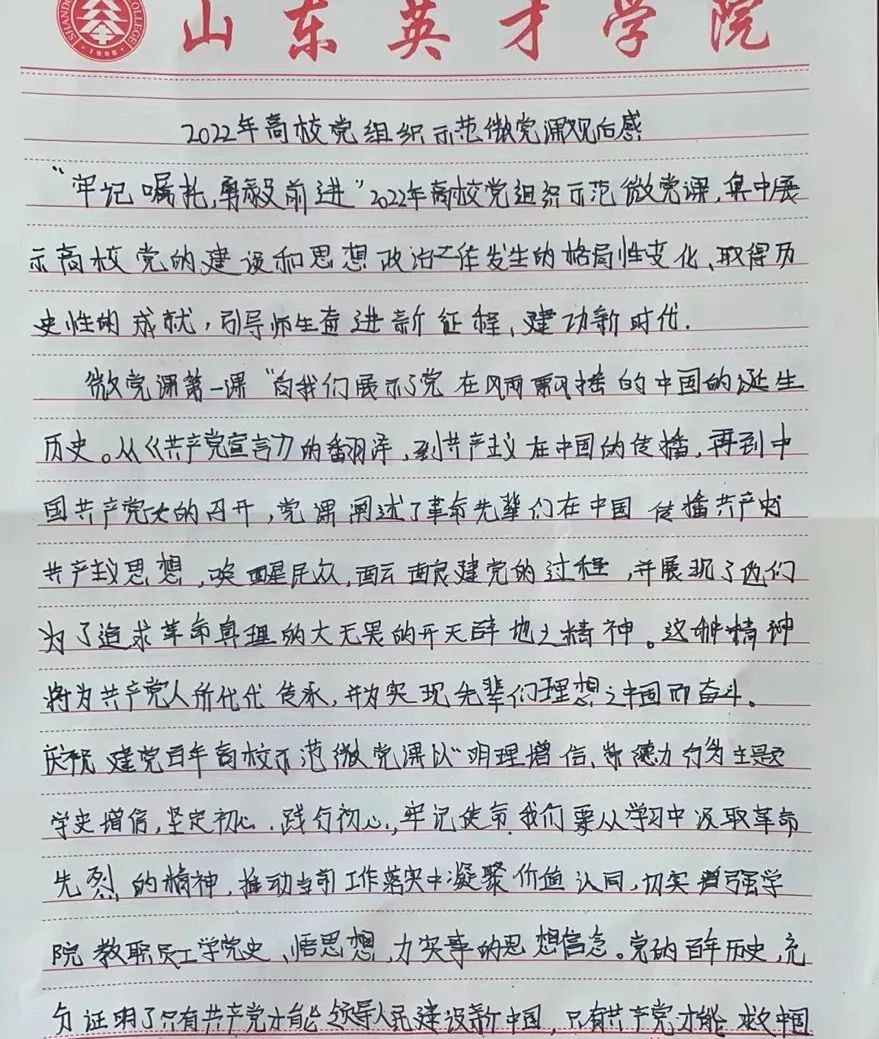 山东英才学院
SHANDONG COLLEGE
1998
2022年高校党组织示范微党课观后感
"牢记嘱托,勇毅前进"2022年高校党组织示范微党课,集中展
示高校党的建设和思想政治工作发生的格局性变化、取得历
史性的成就,引导师生奋进新征程、建功新时代.
微党课第一课"向我们展示了党在风雨飘摇的中国的诞生
历史。从《共产党宣言》的翻译,到共产主义在中国的传播,再到中
国共产党大的召开,党课阐述了革命先辈们在中国传播共产
共产主义思想,唤醒民众,酝酿建党的过程,并展现了他们
为了追求革命真理的大无畏的开天辟地之精神。这种精神
将为共产党人所代代传承,并为实现先辈们理想之中国而奋斗。
庆祝建党百年高校示范微党课以"明理增信、崇德力行为主题
学史增信,坚定初心、践行初心,牢记使命.我们要从学习中汲取革命
先烈的精神,推动当前工作落实中凝聚价值认同,切实增强学
院教职员工学党史、悟思想、力实事的思想信念。党的百年历史,充
分证明了只有共产党才能领导人民建设新中国,只有共产党才能救中国